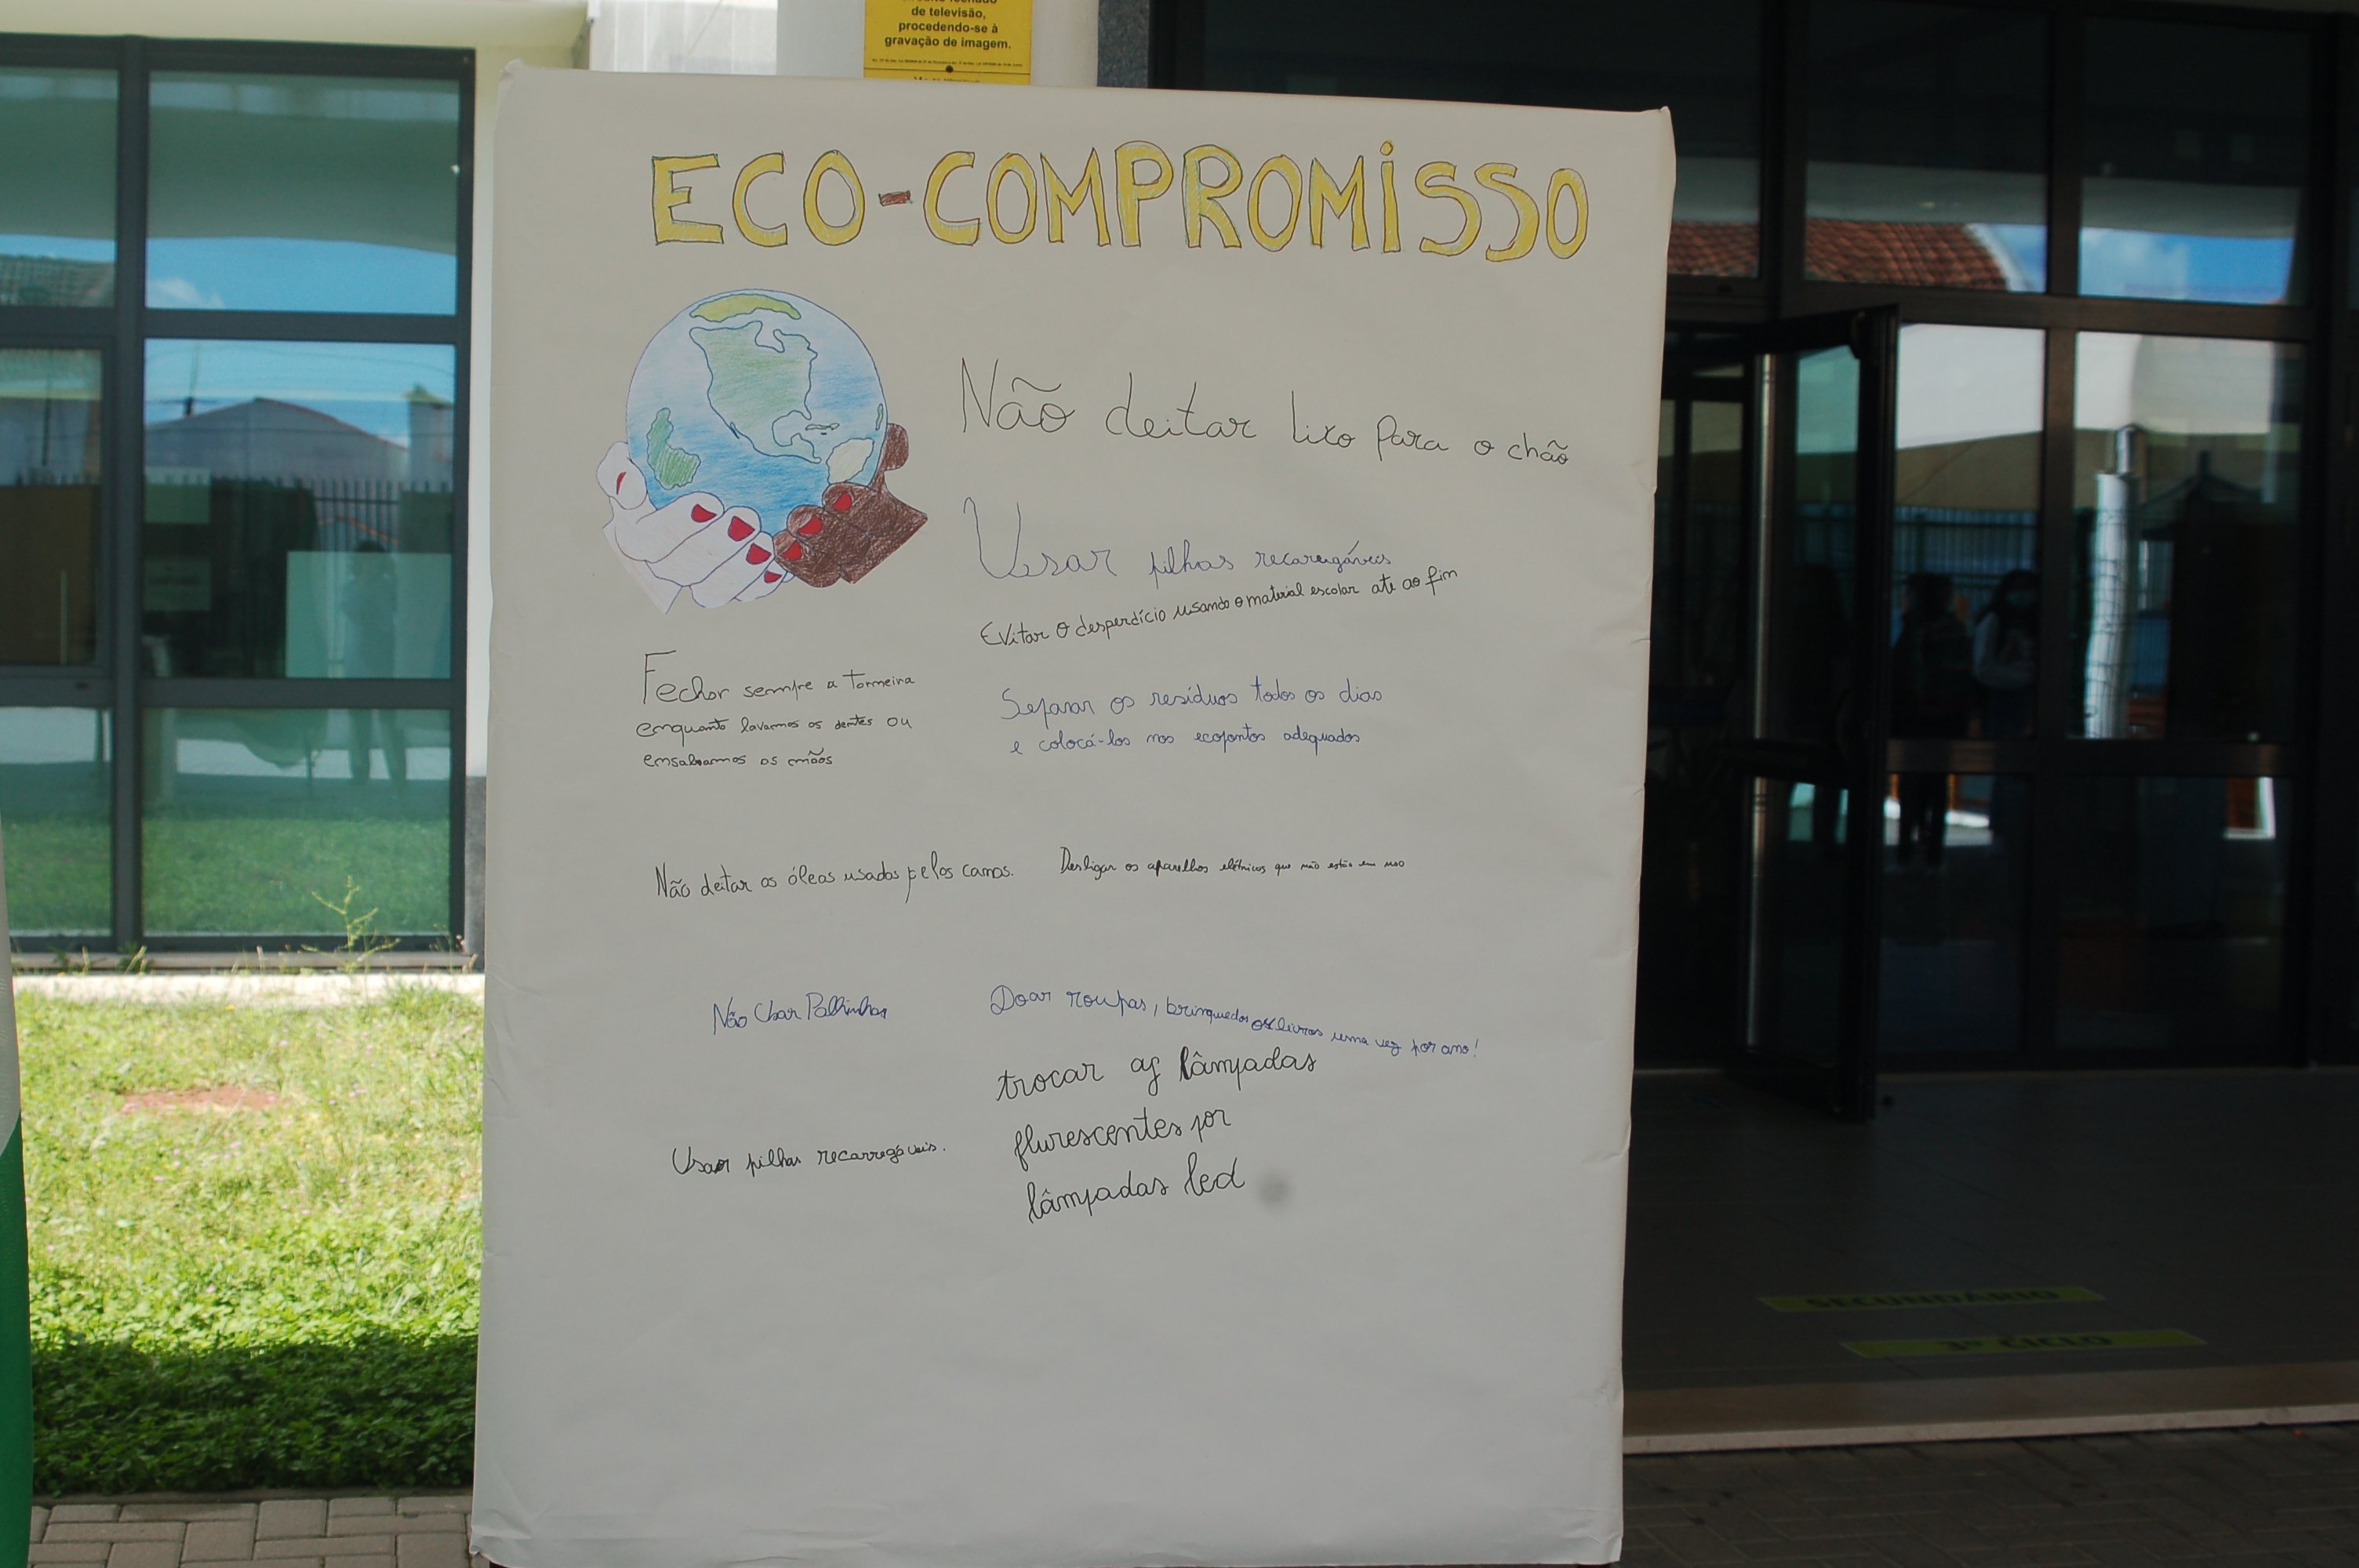 de televisão,
procedendo-se à
gravação de imagem.
ECO-COMPROMISSO
Não deitar lixo para o chão
Usar pilhas recaregáveis
Evitar o desperdício usando o material escolar ate ao fim
Fechar sempre a torneira
enquanto lavamos os dentes ou
ensaboamos as mãos
Separar os resíduos todos os dias
e colocá-los nos ecopontos adequados
Não deitar os óleos usados pelos canos.
Desligar os aparelhos elétricos que não estão em uso
Não Usar Palhinhas
Doar roupas, brinquedos ou livros uma vez por ano!
trocar as lâmpadas
flurescentes por
lâmpadas led
Usar pilhas recarregáveis.
SECUNDÁRIO
3º CICLO